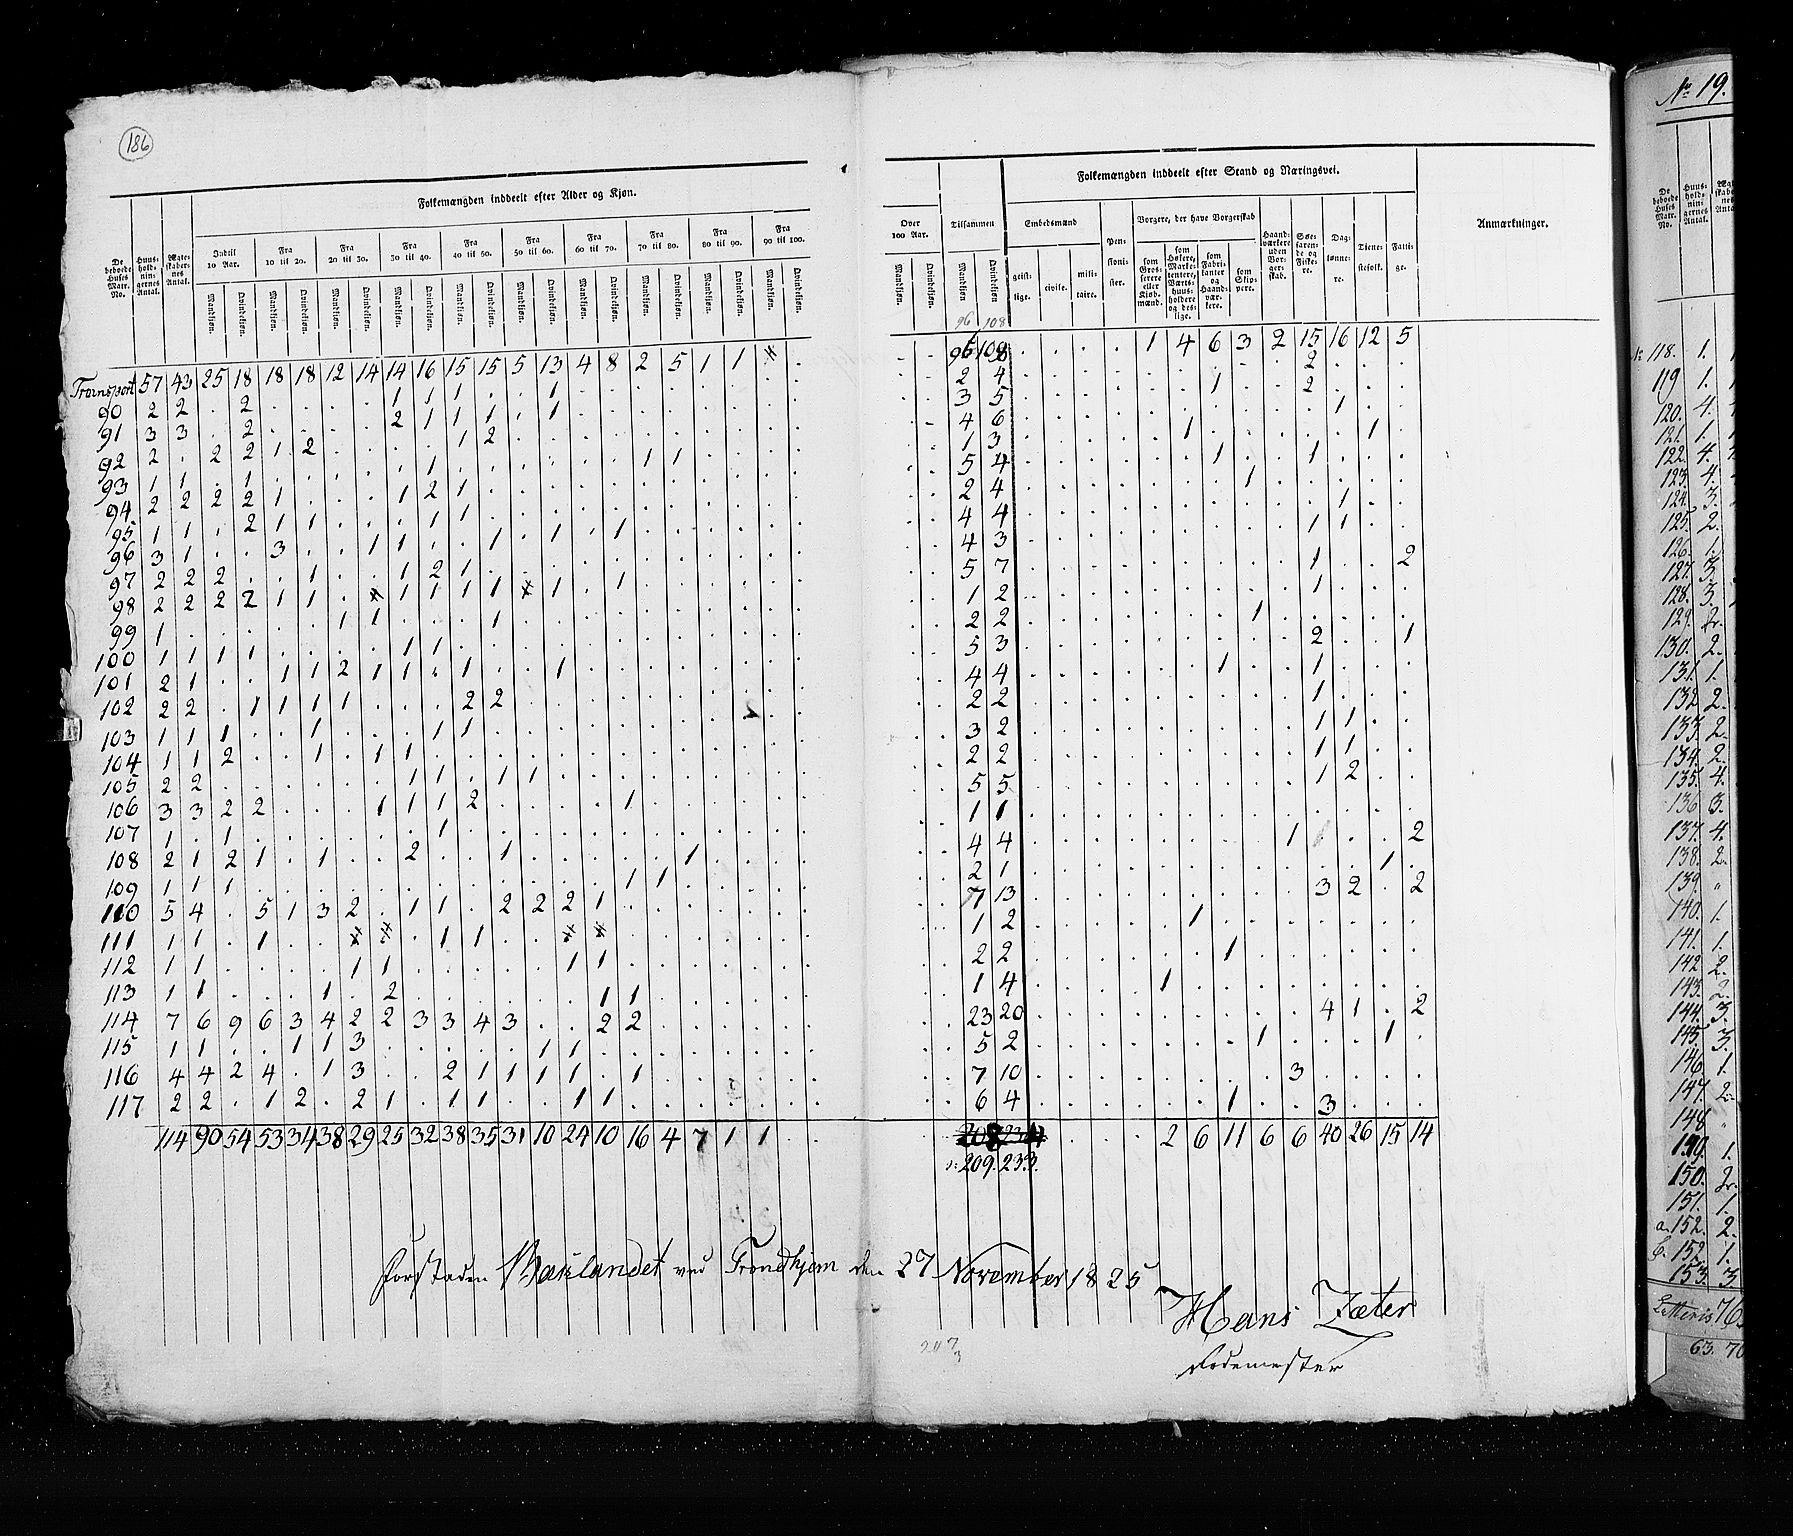 186
Folkemængden inddeelt efter Alder og Kjøn.
De beboede Huses Matr. No. Huusholdningernes Antal. Ægteskabernes Antal. Indtil 10 Aar. Fra 10 til 20. Fra 20 til 30. Fra 30 til 40. Fra 40 til 50. Fra 50 til 60. Fra 60 til 70. Fra 70 til 80. Fra 80 til 90. Fra 90 til 100.
Mandkjøn. Qvindekjøn. Mandkjøn. Qvindekjøn. Mandkjøn. Qvindekjøn. Mandkjøn. Qvindekjøn. Mandkjøn. Qvindekjøn. Mandkjøn. Qvindekjøn. Mandkjøn. Qvindekjøn. Mandkjøn. Qvindekjøn. Mandkjøn. Qvindekjøn. Mandkjøn. Qvindekjøn.
Transport 57 43 25 18 18 18 12 14 14 16 15 15 5 13 4 8 2 5 1 1
90 2 2 . 2 . . . . 1 1 1 . . 1
91 3 3 . 2 . . . . 2 1 1 1 . 1
92 2 . 2 2 1 2 . . . . 1 2
93 1 1 . 1 . . . . . 1 . . . . . . 1 1
94 2 2 2 2 1 . . . 1 2 1
95 1 1 . 2 1 1 . . . 1 1
96 3 1 . . 3 . . 1 1 . . 1 . 1 . 1
97 2 2 2 . . 1 . . 1 2 1
98 2 2 2 2 1 1 . . 1 1 1 1 . 1 . 1
99 1 . . . . . 1 1 . . . 1
100 1 1 1 1 . . . . 1 1
101 2 1 . . 1 1 2 1 1 . 1 . . 1
102 2 2 . 1 1 1 1 . . . 2 2
103 1 1 1 . . 1 . . . 1 1
104 1 1 2 . . 1 . 1 1
105 2 2 . . . . . . 1 1 . 1 1
106 3 3 2 2 . . . 1 1 1 2 . . . . 1
107 1 . 1 . . . . . . 1
108 2 1 2 1 . 1 . . 2 . . 1 . . . . . 1
109 1 1 1 . . . . . . . . . . . . 1 1
110 5 4 . 5 1 3 2 . 1 1 . 2 2 2 1
111 1 1 . 1 . . . . . 1 1
112 1 1 . . . . 1 1 . . . . . 1 1
113 1 1 . . . 1 . 2 . . . . . . 1 1
114 7 6 9 6 3 4 2 2 3 3 4 3 . . 2 2
115 1 1 . . 1 1 3 . . . . . 1 1
116 4 4 2 4 . 1 3 . . 2 1 1 1 1 . 1
117 2 2 . 1 2 . 2 1 . 1 1 . . 1 1
114 90 54 53 34 38 29 25 32 38 35 31 10 24 10 16 4 7 1 1
Forstaden Baklandet ved Trondhjem den 27 November 1825
Hans Zæter
Rodemester
Folkemængden inddeelt efter Stand og Næringsvei.
Over 100 Aar. Tilsammen Embedsmænd Pensionister. Borgere, der have Borgerskab Haandværkere uden Borgerskab. Søefarende og Fiskere. Daglønnere. Tienestefolk. Fattige. Anmærkninger.
Mandkjøn. Qvindekjøn. Mandkjøn Qvindekjøn geistlige. civile. militaire. som Grosserere eller Kjøbmænd. som Høkere, Marketentere, Værtshuusholdere og deslige. som Fabrikanter og Haandværkere. som Skippere.
96 108
96 108 . . . . 1 4 6 3 2 15 16 12 5
2 4 2
3 5 1 2
4 6 1
1 3 1 1
5 4 1 1
2 4 1
4 4 1
4 3 1 1
5 7 1 2
1 2 1
2 2 1
5 3 2 1
4 4 1 1
2 2 1
3 2 1 1
2 2 1 1
5 5 1 2
1 1
4 4 1 2
2 1 1
7 13 3 2 . 2
1 2 1
2 2 1
1 4 1
23 20 4 1 . 2
5 2 1 1
7 10 3
6 4 1 3
208 234 2 6 11 6 6 40 26 15 14
209. 233.
207
3
No 19.
De beboede Huses Matr. No. Huusholdningernes Antal.
No 118. 1.
119 1.
120. 4.
121. 1.
122. 4.
123. 4.
124. 3.
125. 2.
126. 1.
127. 3.
128. 3.
129.
130. 2.
131. 1.
132 2.
133. 2.
134. 2.
135. 4.
136 3.
137. 4.
138. 2.
139. "
140. 1.
141. 1.
142 2.
143. 2.
144. 3.
145. 3.
146. 1.
147. 2.
148 "
149. 1.
150.
151. 1.
a. 152. 2.
b. 152. 1.
153. 3.
63. 70